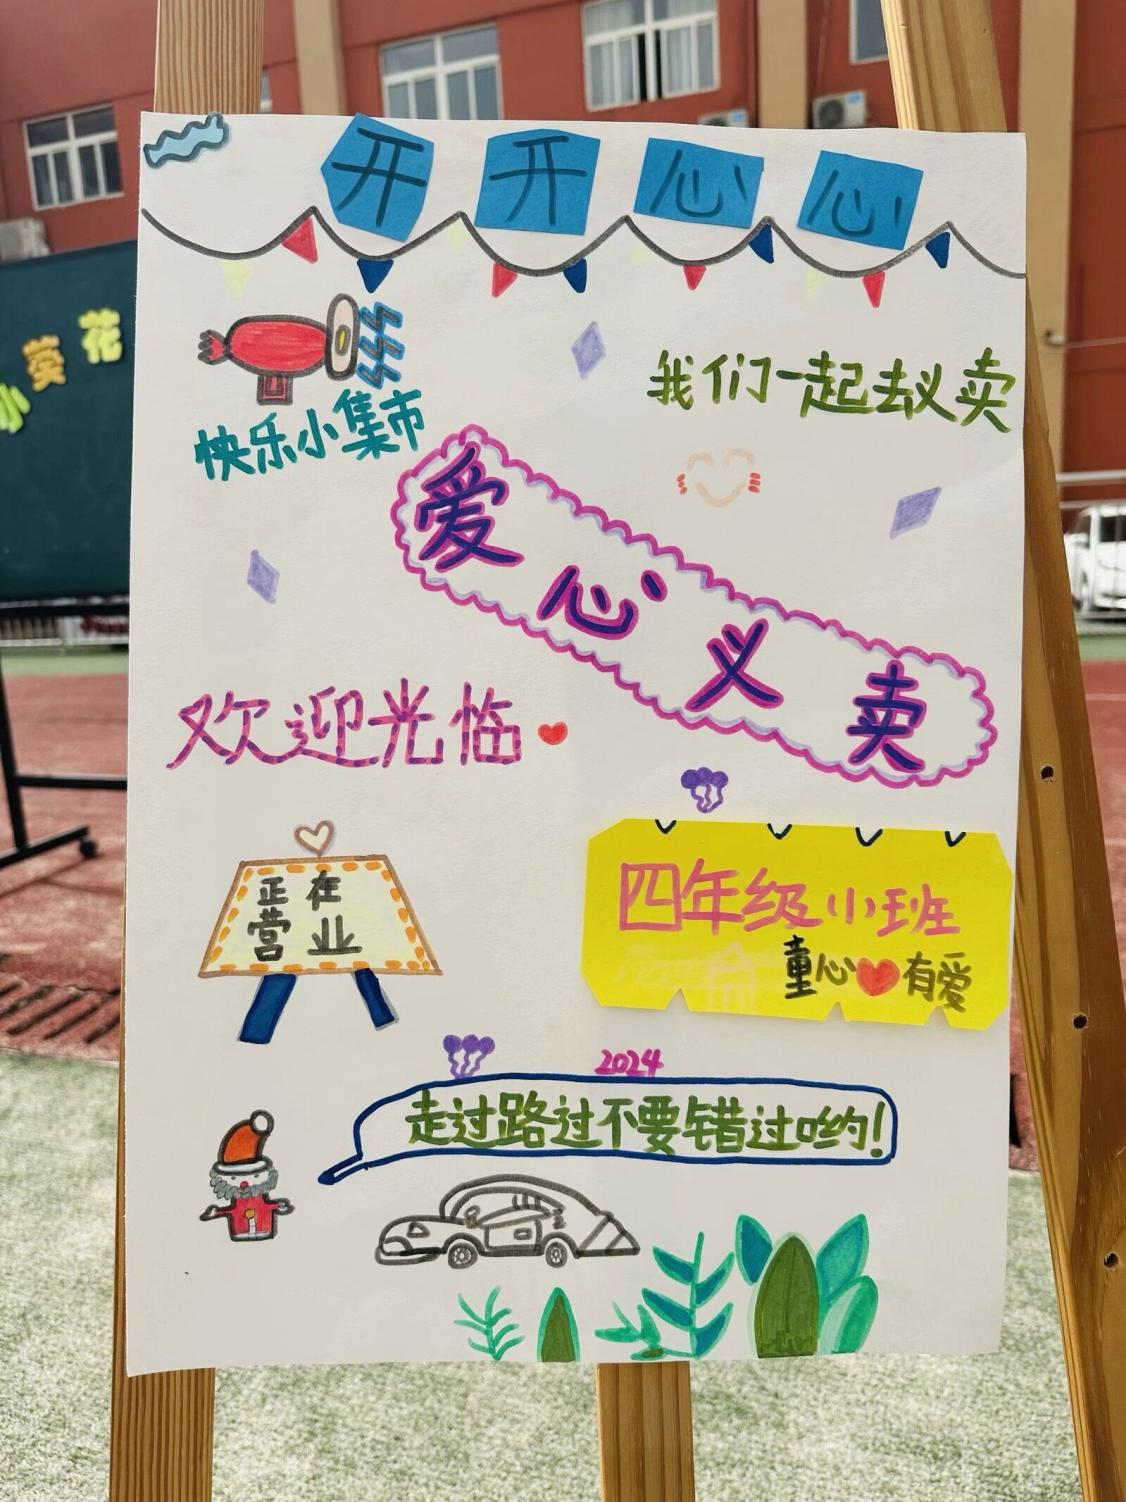 开开心心
小葵花
快乐小集市
我们一起去义卖
爱心义卖
欢迎光临
正在
营业
四年级小班
童心有爱
2024
走过路过不要错过哟!